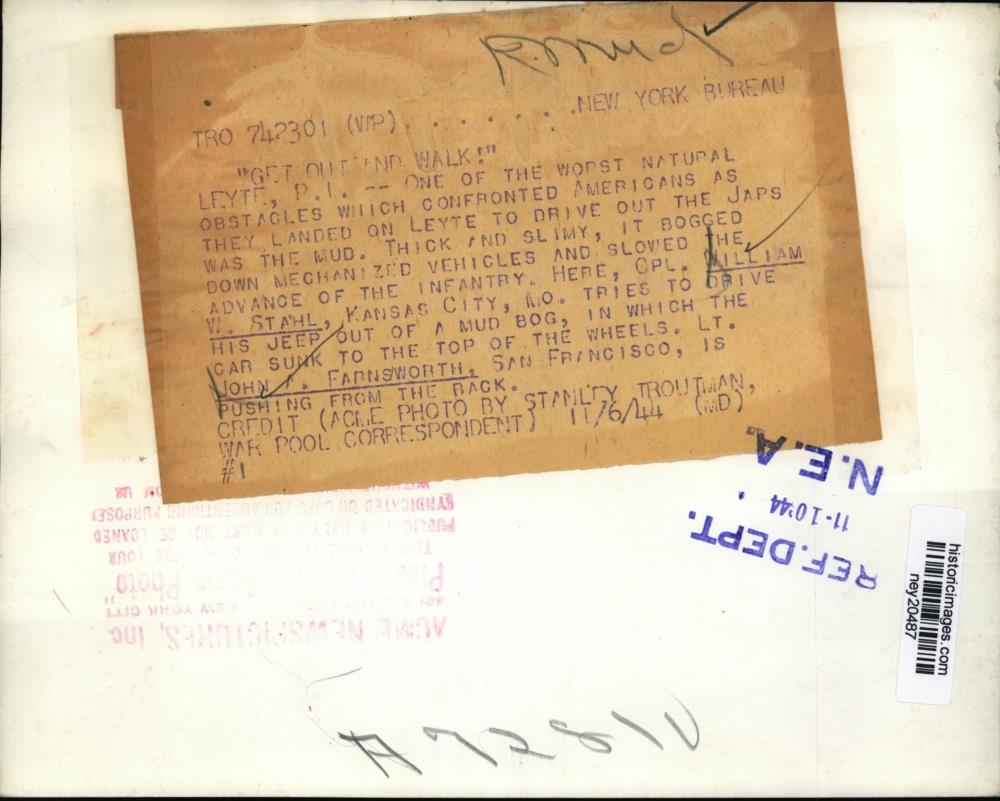 TRO 742301 (WP). . . . . . .NEW YORK BUREAU
"GET OUT AND WALK!"
LEYTE, P.I. -- ONE OF THE WORST NATURAL
OBSTACLES WHICH CONFRONTED AMERICANS AS
THEY LANDED ON LEYTE TO DRIVE OUT THE JAPS
WAS THE MUD. THICK AND SLIMY, IT BOGGED
DOWN MECHANIZED VEHICLES AND SLOWED THE
ADVANCE OF THE INFANTRY. HERE, CPL. WILLIAM
W. STAHL, KANSAS CITY, MO. TRIES TO DRIVE
HIS JEEP OUT OF A MUD BOG, IN WHICH THE
CAR SUNK TO THE TOP OF THE WHEELS. LT.
JOHN A. FARNSWORTH, SAN FRANCISCO, IS
PUSHING FROM THE BACK.
CREDIT (ACME PHOTO BY STANLEY TROUTMAN,
WAR POOL CORRESPONDENT) 11/6/44 (MD)
#1
N.E.A.
11-10-44
REF. DEPT.
historicimages.com
ney20487
SYNDICATED OR USED FOR ADVERTISING PURPOSES
PUBLICATION ONLY AND MUST NOT BE LOANED
THIS PICTURE IS FOR YOUR
Photo"
NEW YORK CITY
ACME NEWSPICTURES, Inc.